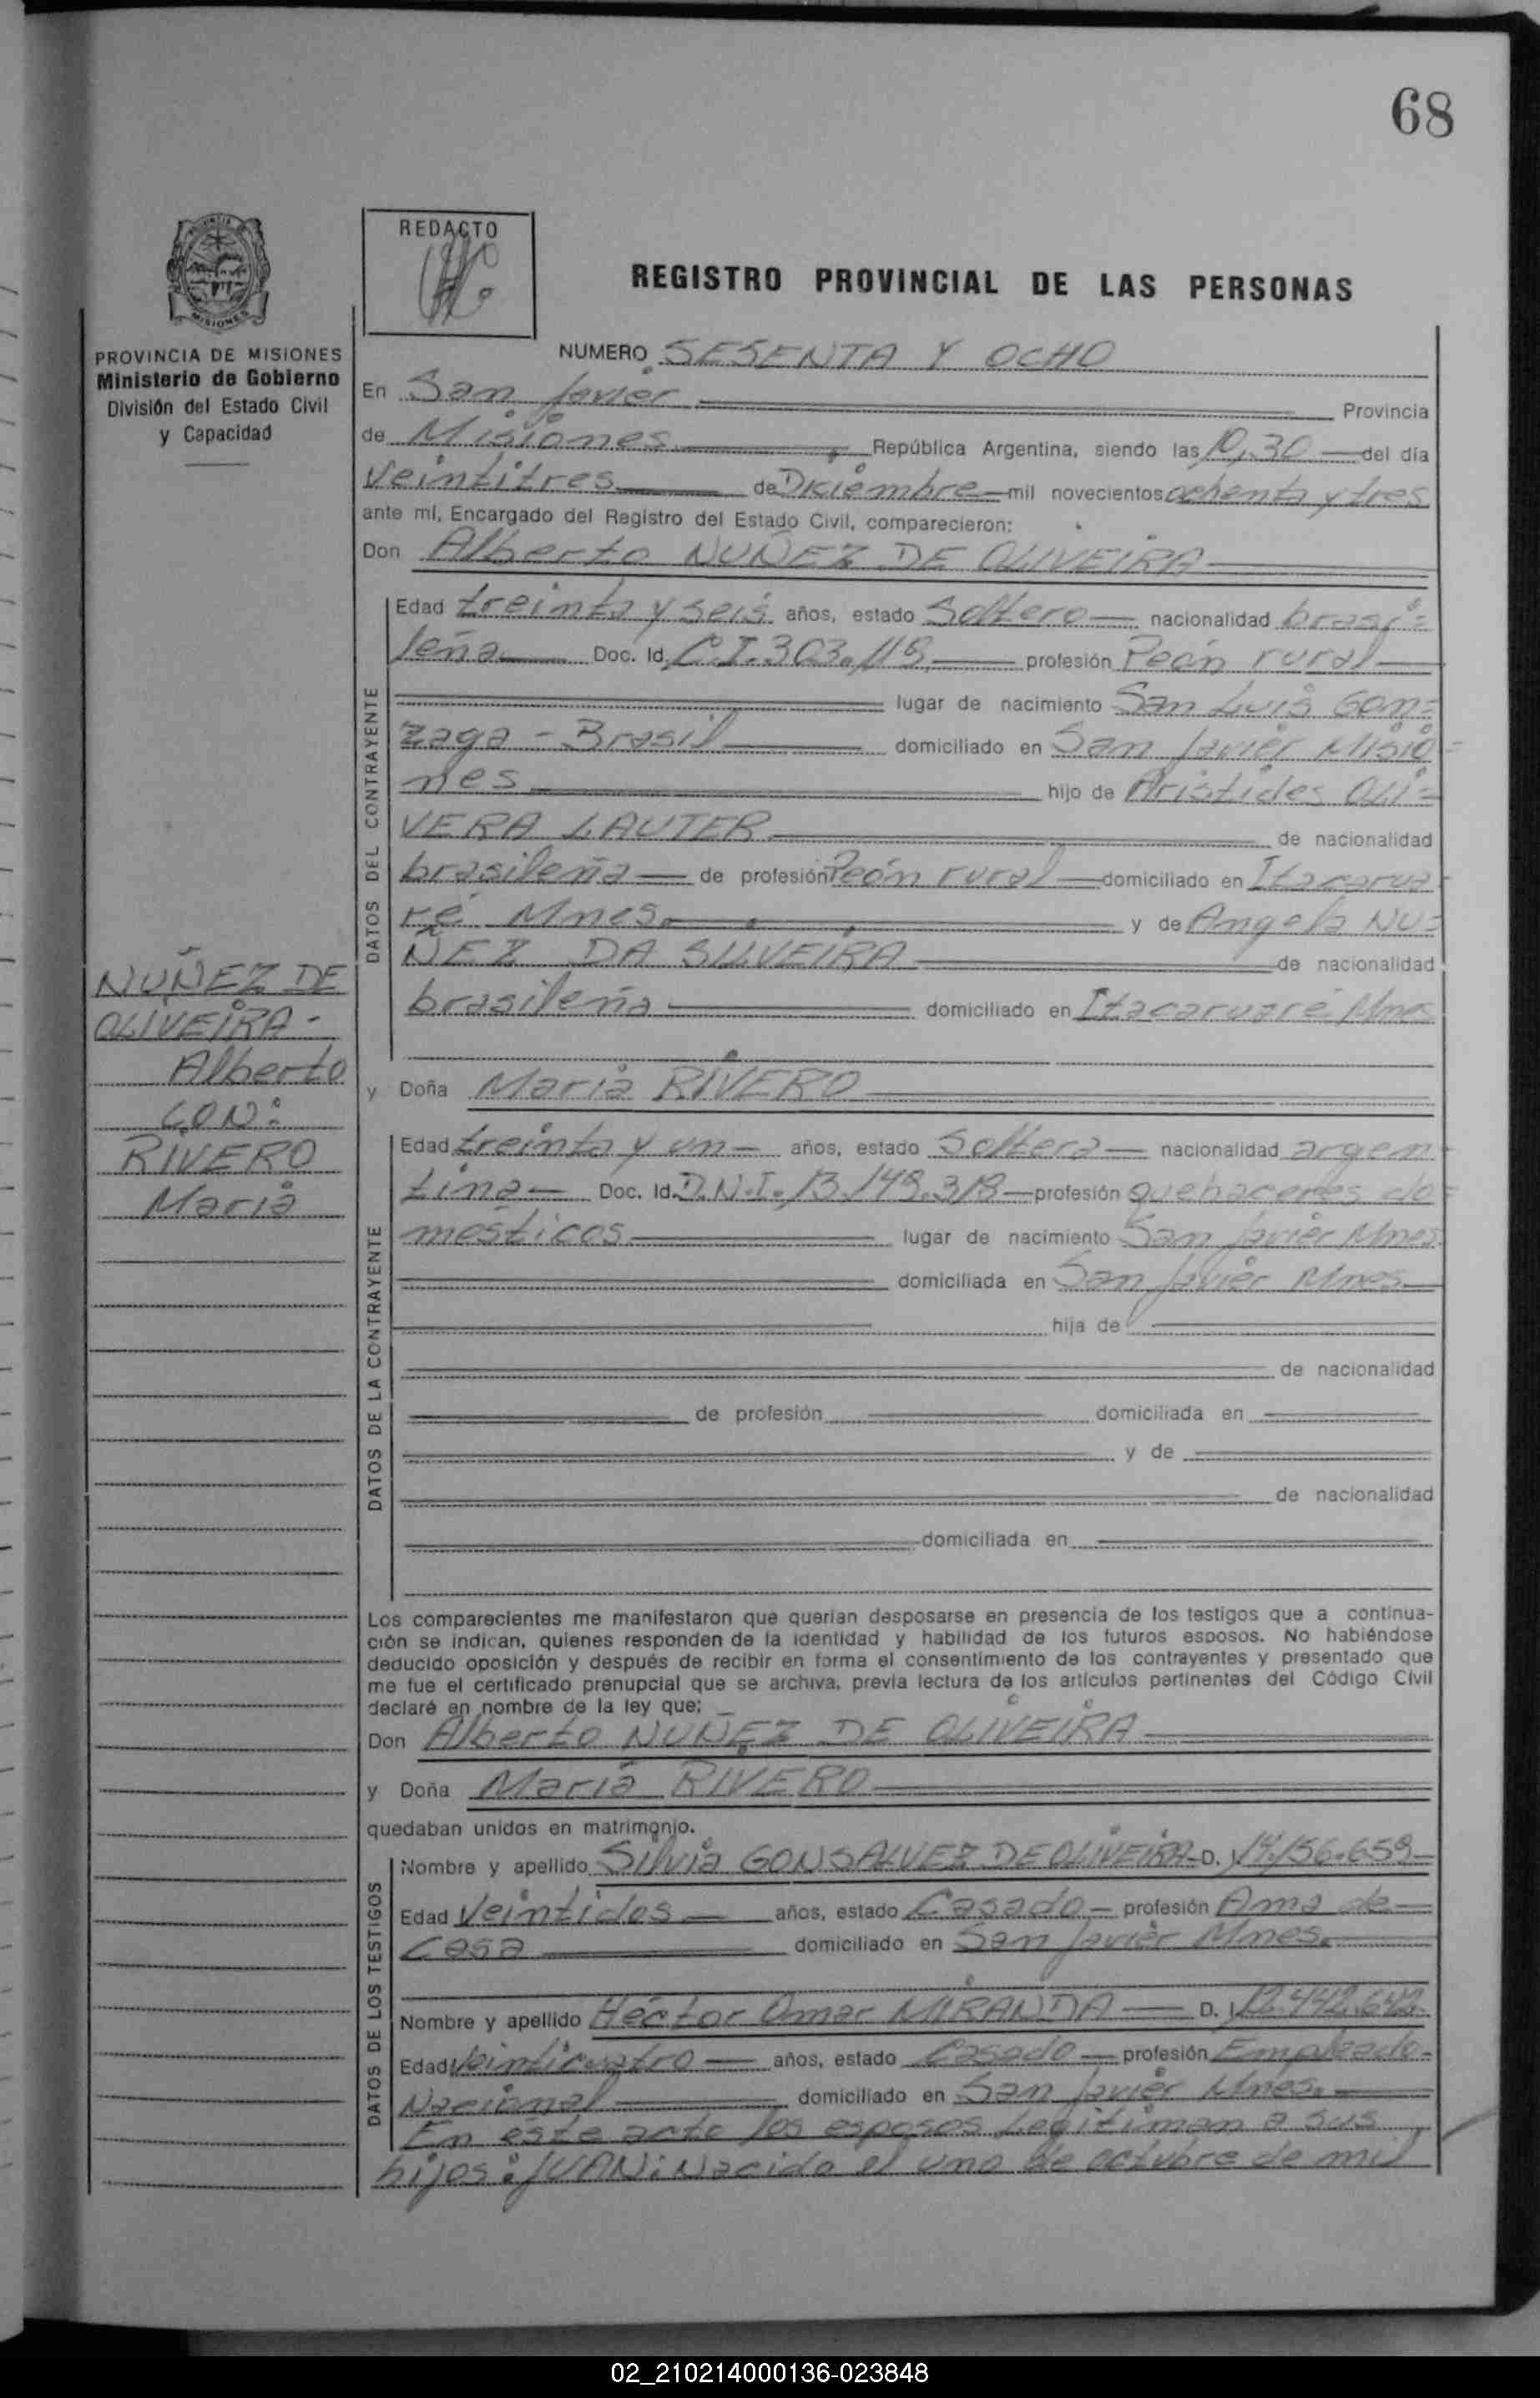 68
REDACTO
REGISTRO PROVINCIAL DE LAS PERSONAS
MISIONES
PROVINCIA DE MISIONES
Ministerio de Gobierno
División del Estado Civil
y Capacidad
NUÑEZ DE
OLIVEIRA-
Alberto
CON:
RIVERO
María
NUMERO SESENTA Y OCHO
En San Javier Provincia
de Misiones, República Argentina, siendo las 10,30 del día
Veintitres de Diciembre mil novecientos ochenta y tres
ante mí, Encargado del Registro del Estado Civil, comparecieron:
Don Alberto NUÑEZ DE OLIVEIRA
DATOS DEL CONTRAYENTE
Edad treinta y seis años, estado Soltero nacionalidad brasi=
leña Doc. Id. C.I. 303.118 profesión Peón rural
lugar de nacimiento San Luis Gon=
zaga - Brasil domiciliado en San Javier Misio=
nes hijo de Aristides OLI=
VERA LAUTER de nacionalidad
brasileña de profesión Peón rural domiciliado en Itacarua=
ré Mnes. y de Angela NU=
ÑEZ DA SILVEIRA de nacionalidad
brasileña domiciliado en Itacaruaré Mnes
y Doña María RIVERO
DATOS DE LA CONTRAYENTE
Edad treinta y un años, estado Soltera nacionalidad argen=
tina Doc. Id. D.N.I. 13.148.318 profesión quehaceres do=
mésticos lugar de nacimiento San Javier Mnes
domiciliada en San Javier Mnes
hija de
de nacionalidad
de profesión domiciliada en
y de
de nacionalidad
domiciliada en
Los comparecientes me manifestaron que querían desposarse en presencia de los testigos que a continua-
ción se indican, quienes responden de la identidad y habilidad de los futuros esposos. No habiéndose
deducido oposición y después de recibir en forma el consentimiento de los contrayentes y presentado que
me fue el certificado prenupcial que se archiva, previa lectura de los artículos pertinentes del Código Civil
declaré en nombre de la ley que:
Don Alberto NUÑEZ DE OLIVEIRA
y Doña María RIVERO
quedaban unidos en matrimonio.
DATOS DE LOS TESTIGOS
Nombre y apellido Silvia GONSALVEZ DE OLIVEIRA D. I. 14.156.659
Edad Veintidos años, estado Casado profesión Ama de
Casa domiciliado en San Javier Mnes.
Nombre y apellido Héctor Omar MIRANDA D. I. 12.442.642.
Edad Veinticuatro años, estado Casado profesión Empleado
Nacional domiciliado en San Javier Mnes.
En este acto los esposos Legitiman a sus
hijos: JUAN: Nacido el uno de octubre de mil
02_210214000136-023848